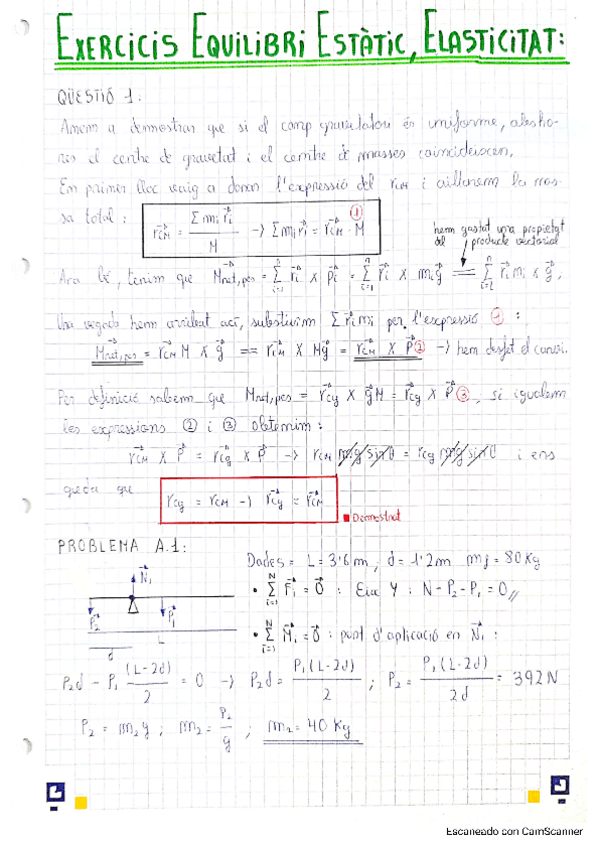 EXERCICIS EQUILIBRI ESTÀTIC, ELASTICITAT:
QÜESTIÓ 1:
Anem a demostrar que si el camp gravitatori és uniforme, alesho-
res el centre de gravetat i el centre de masses coincideixen.
En primer lloc vaig a donar l'expressió del rCM i aïllarem la mas-
sa total:
r⃗CM = Σ mi r⃗i / M → Σ mi r⃗i = r⃗CM · M ①
hem gastat una propietat
del producte vectorial
Ara bé, tenim que M⃗net,pes = Σ r⃗i × p⃗i = Σ r⃗i × mi g⃗ = Σ r⃗i mi × g⃗;
Una vegada hem arribat ací, substituim Σ r⃗i mi per l'expressió ①:
M⃗net,pes = r⃗CM M × g⃗ == r⃗CM × Mg⃗ = r⃗CM × P⃗ ② → hem desfet el canvi.
Per definició sabem que Mnet,pes = r⃗cg × g⃗M = r⃗cg × P⃗ ③, si igualem
les expressions ② i ③ obtenim:
r⃗CM × P⃗ = r⃗cg × P⃗ → rCM mg sinθ = rcg mg sinθ i ens
queda que
rcg = rCM → r⃗cg = r⃗CM
Demostrat
PROBLEMA A.1:
Dades = L = 3'6 m, d = 1'2 m mj = 80 Kg
• Σ F⃗i = 0⃗ : Eix Y : N - P2 - P1 = 0 //
N⃗1
P⃗2
P⃗1
L
d
• Σ M⃗i = 0⃗ : punt d'aplicació en N⃗1 :
P2d - P1 (L-2d)/2 = 0 → P2d = P1(L-2d)/2 ; P2 = P1(L-2d)/2d = 392 N
P2 = m2g ; m2 = P2/g ; m2 = 40 Kg
Escaneado con CamScanner